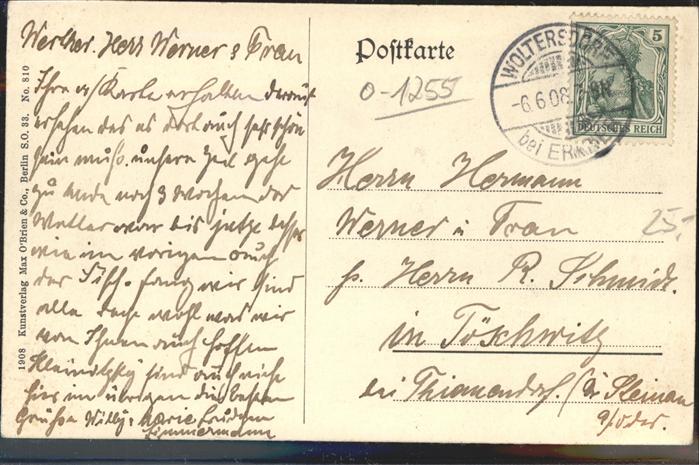 Werther Herr Werner & Frau
Ihre w/ Karte erhalten daraus
ersehen das es dort auch sehr schön
sein muß. unsere Zeit geht
zu Ende noch 3 Wochen das
Wetter war bis jetzt besser
wie im vorigen auch
der Fisch-fang wir sind
alle doch wohl was wir
von Ihnen auch hoffen
sind auch nicht
hier im übrigen die besten
Grüße Willy & Marie
Zimmermann
1908 Kunstverlag Max O'Brien & Co., Berlin S.O. 33. No. 810
Postkarte
0-1255
WOLTERSDORF
-6.6.08
bei ERKNER
5
DEUTSCHES REICH
Herrn Hermann
Werner u Frau
p. Herrn R. Schmidt.
in Töschwitz
bei Thiemendorf /Kr Steinau
a/Oder.
25,-